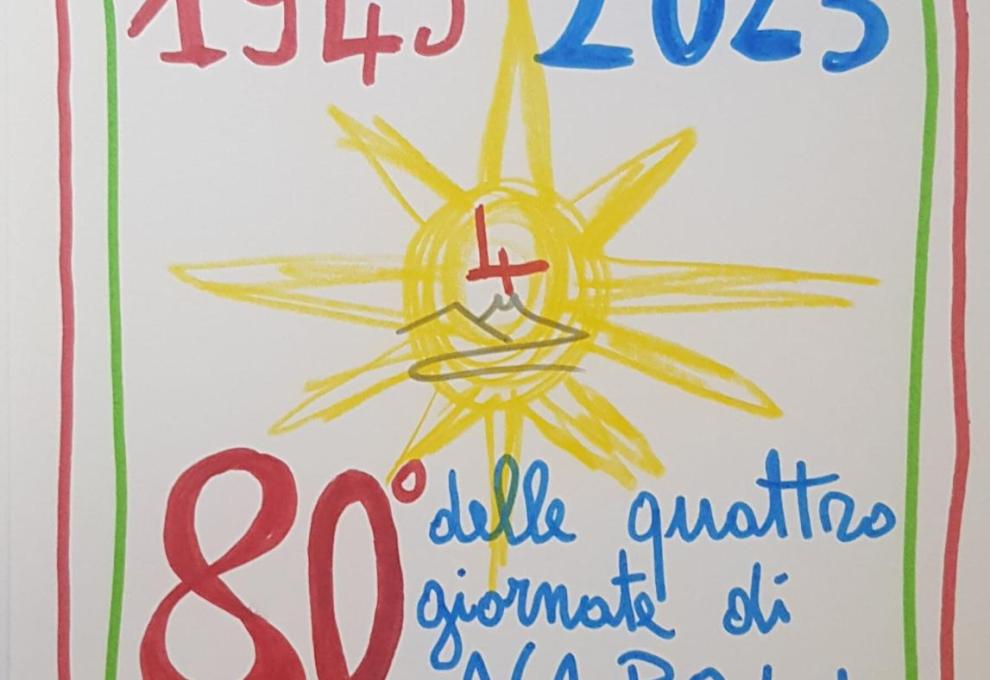 1943 2023
4
80° delle quattro
giornate di
NAPOLI